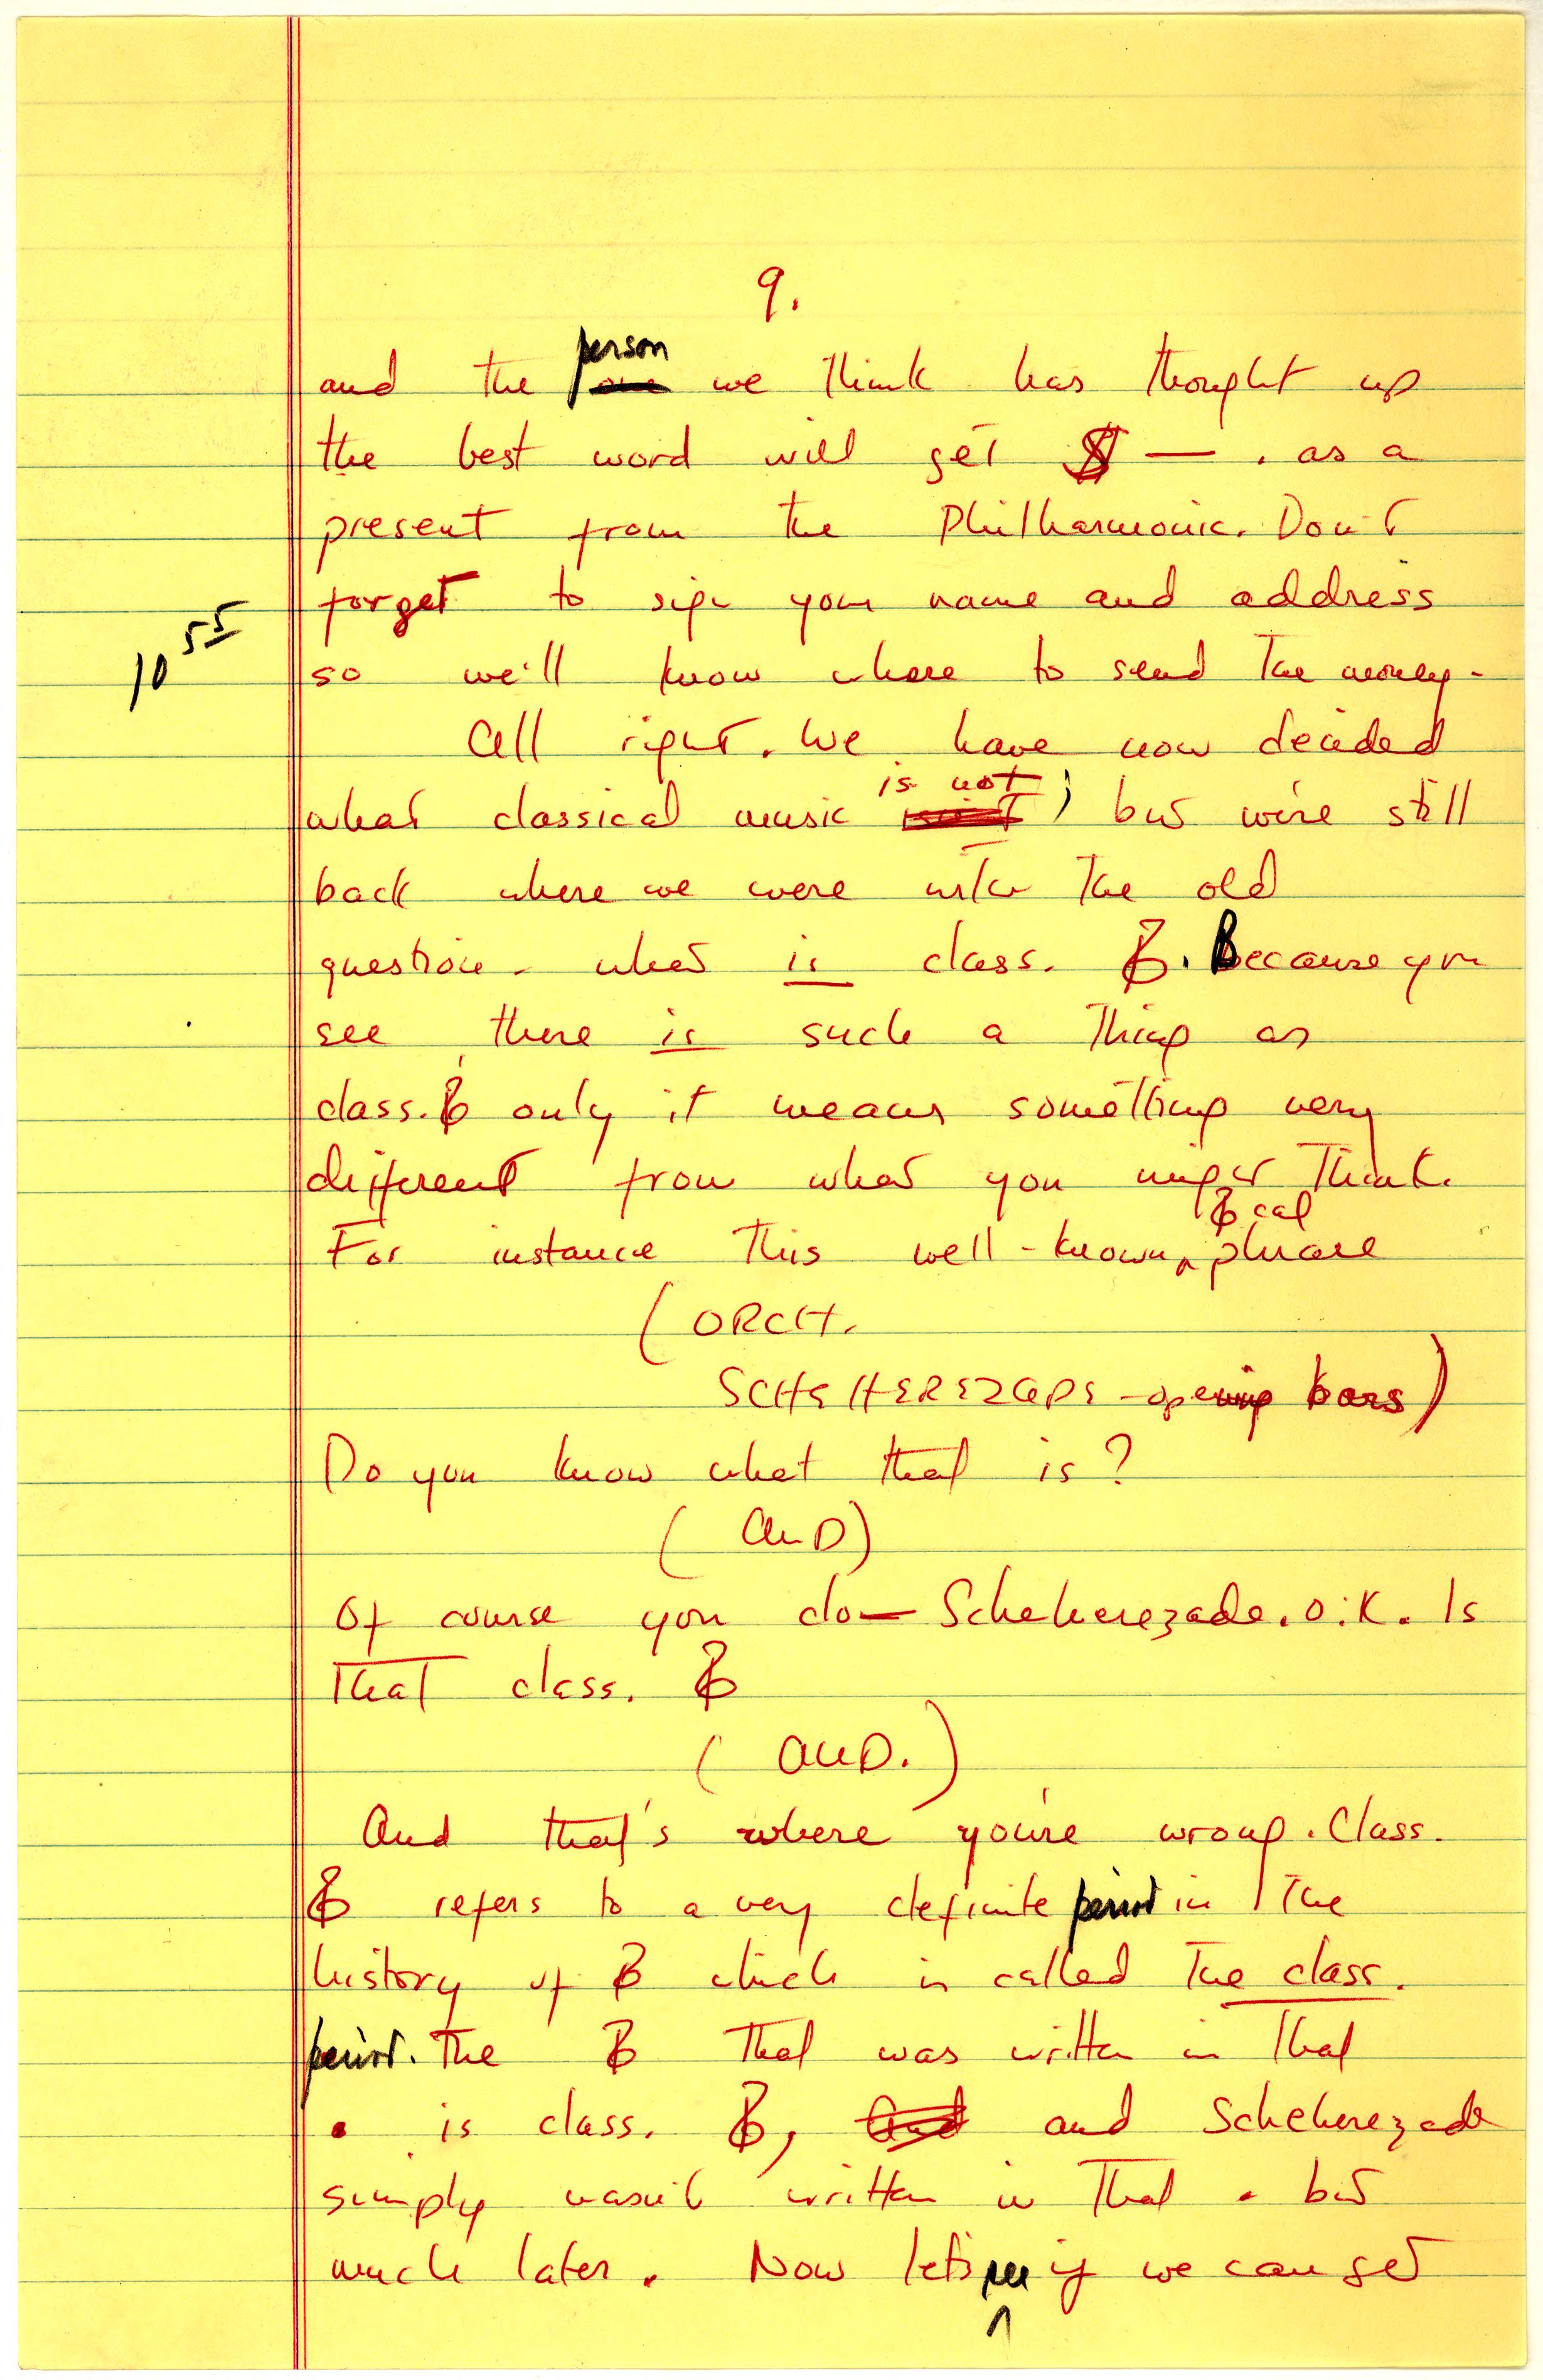 9.
person
and the one we think has thought up
the best word will get $ — . as a
present from the Philharmonic. Don't
forget to sign your name and address
10 55
so we'll know where to send the money.
All right. We have now decided
is not
what classical music isn't; but we're still
back where we were with the old
question - what is class. 𝄡. Because you
see, there is such a thing as
class. 𝄡 only it means something very
different from what you might think.
𝄡cal
For instance this well-known ^ phrase
(ORCH.
SCHEHEREZADE - opening bars)
Do you know what that is?
(AUD)
Of course you do — Scheherezade. O.K. Is
that class. 𝄡
(AUD.)
And that's where you're wrong. Class.
𝄡 refers to a very definite period in the
history of 𝄡 which is called the class.
period. The 𝄡 that was written in that
. is class. 𝄡, And and Scheherezade
simply wasn't written in that . but
much later. Now let's see if we can get
^